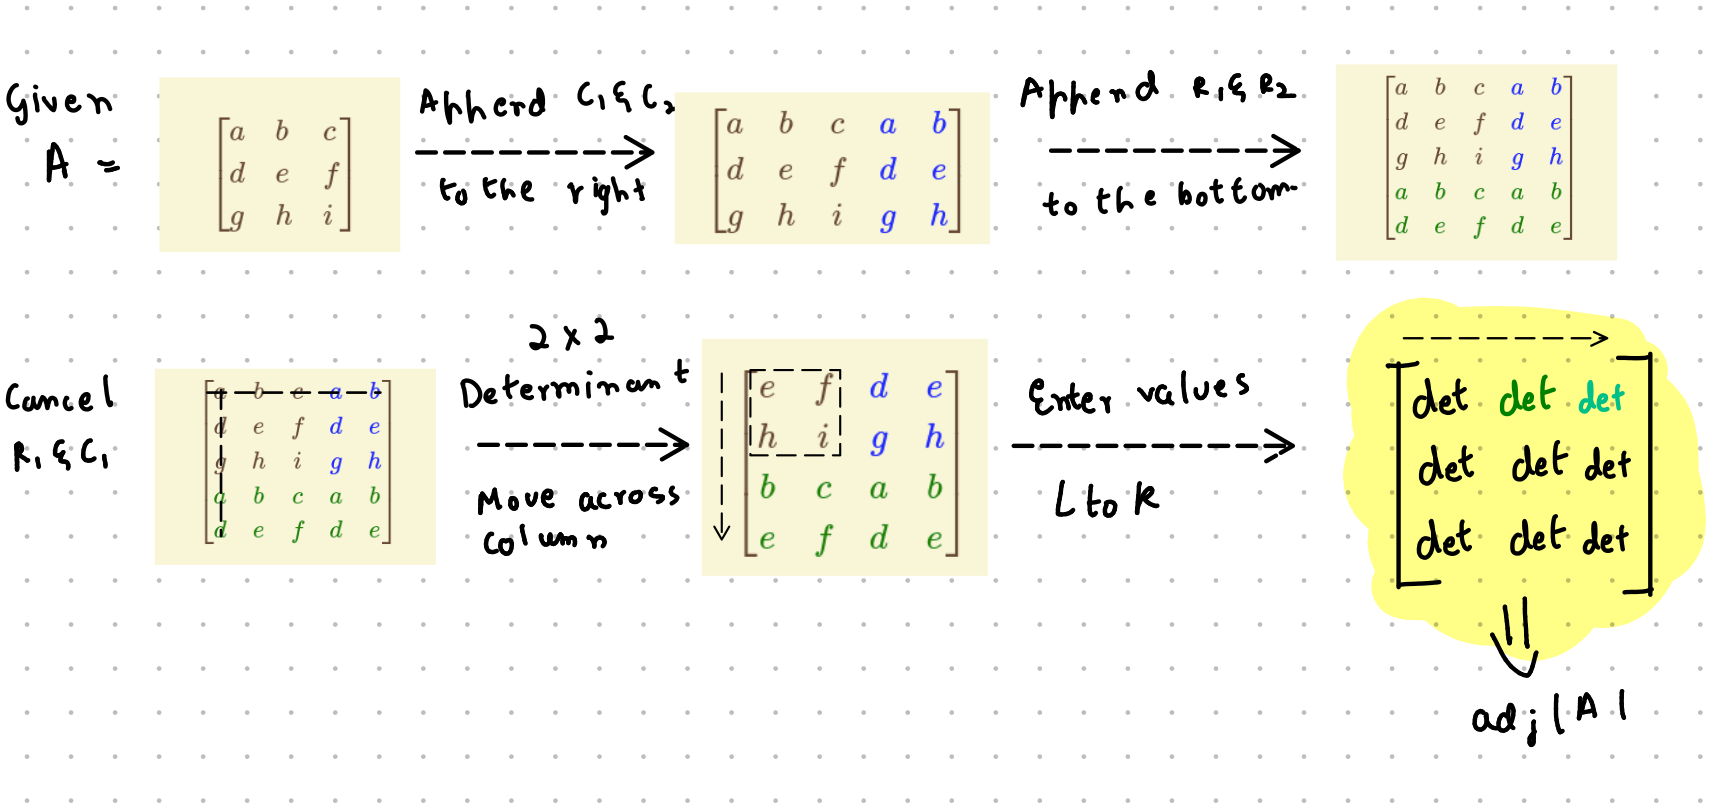 Given
A =
a b c
d e f
g h i
Append C₁ & C₂
to the right
a b c a b
d e f d e
g h i g h
Append R₁ & R₂
to the bottom
a b c a b
d e f d e
g h i g h
a b c a b
d e f d e
Cancel
R₁ & C₁
a b c a b
d e f d e
g h i g h
a b c a b
d e f d e
2 x 2
Determinant
Move across
column
e f d e
h i g h
b c a b
e f d e
Enter values
L to R
det det det
det det det
det det det
adj |A|